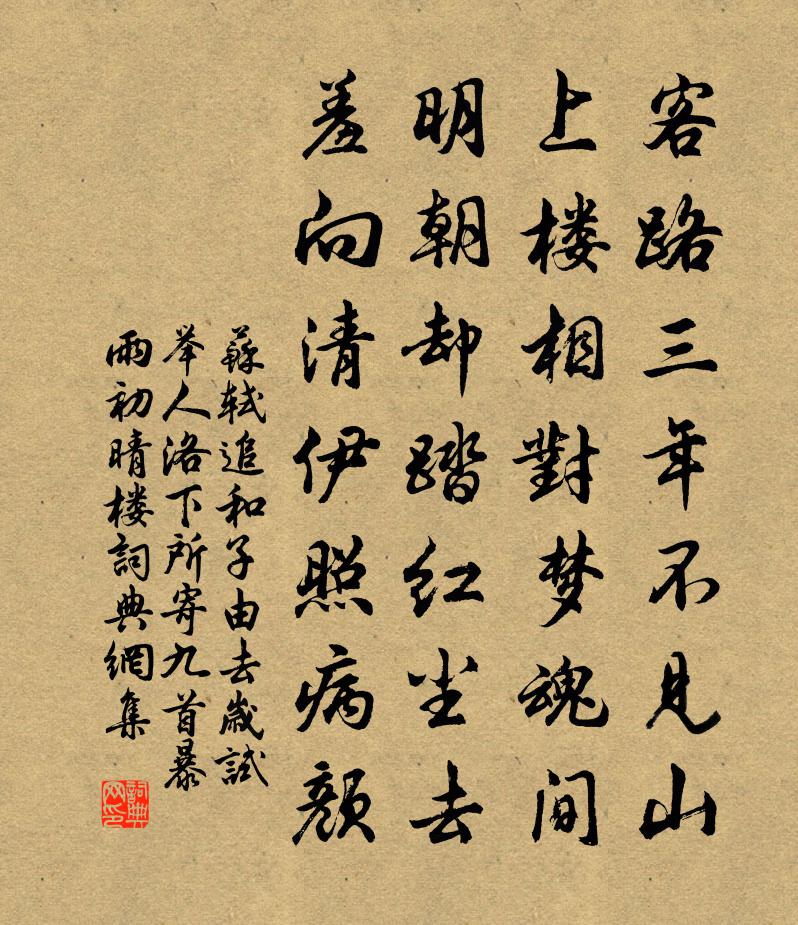 客路三年不见山
上楼相對梦魂间
明朝却踏红尘去
羞向清伊照病颜
蘇轼追和子由去歲試
举人洛下所寄九首暴
雨初晴楼詞典網集
詞典
网印